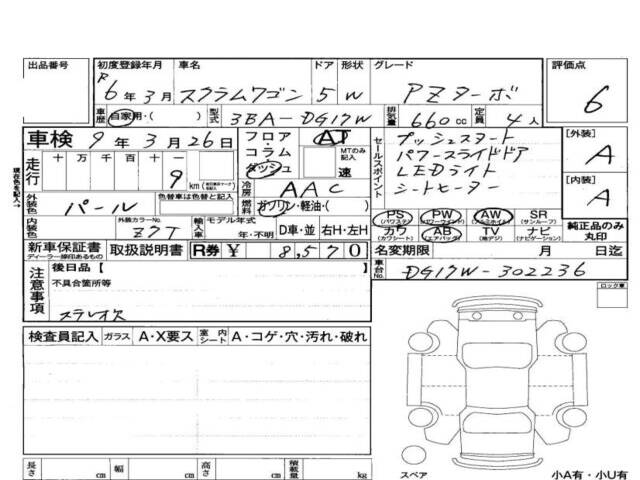 出品番号 初度登録年月 車名 ドア 形状 グレード 評価点
R6年3月 スクラムワゴン 5 W PZターボ 6
車歴 自家用・( ) 型式 3BA-DG17W 排気量 660cc 定員 4人
車検 9年3月26日 フロア・コラム・ダッシュ AT セールスポイント プッシュスタート [外装]
MTのみ記入 パワースライドドア A
現在色を記入→ 走行 十 万 千 百 十 一 速 LEDライト
9 km 冷房 AAC シートヒーター [内装]
外装色 パール 色替車は色替と記入 燃料 ガソリン・軽油・( ) A
内装色 外装カラーNo. Z7T 輸入車 モデル年式 年・不明 D車・並 右H・左H
PS (パワステ) PW (パワーウインド) AW (アルミホイル) SR (サンルーフ)
カワ (カワシート) AB (エアバック) TV (地デジ) ナビ (ナビゲーション) 純正品のみ丸印
新車保証書 ディーラー捺印あるもの 取扱説明書 R券 ¥ 8,570 名変期限 月 日迄
注意事項 後日品 [ ] 車台No. DG17W-302236
不具合箇所等 ロック車
ステレオ欠
検査員記入 ガラス A・X要ス 室内シート A・コゲ・穴・汚れ・破れ
スペア
長さ cm 幅 cm 高さ cm 積載量 kg 小A有・小U有